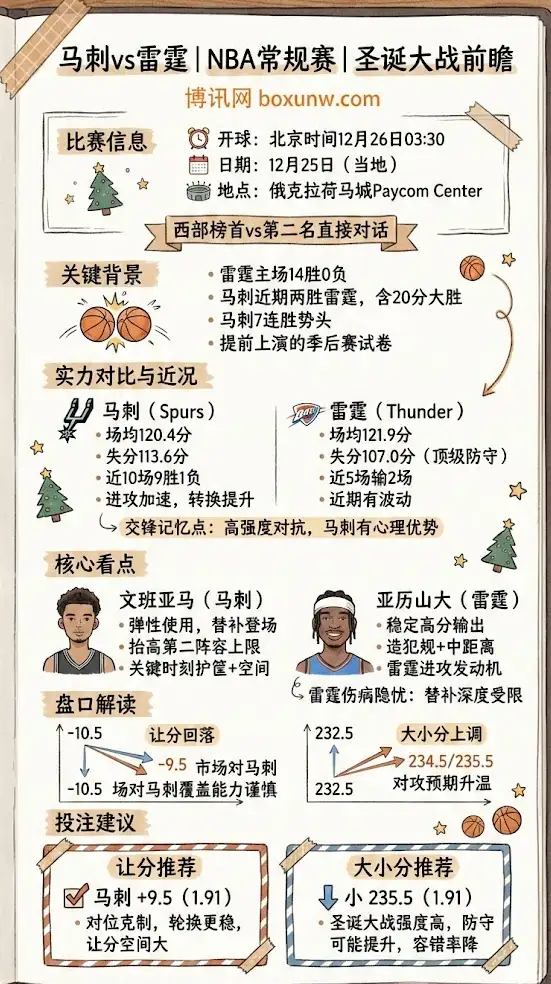 马刺vs雷霆 | NBA常规赛 | 圣诞大战前瞻
博讯网 boxunw.com
比赛信息
开球：北京时间12月26日03:30
日期：12月25日（当地）
地点：俄克拉荷马城Paycom Center
西部榜首vs第二名直接对话
关键背景
• 雷霆主场14胜0负
• 马刺近期两胜雷霆，含20分大胜
• 马刺7连胜势头
• 提前上演的季后赛试卷
实力对比与近况
马刺（Spurs）
• 场均120.4分
• 失分113.6分
• 近10场9胜1负
• 进攻加速，转换提升
雷霆（Thunder）
• 场均121.9分
• 失分107.0分（顶级防守）
• 近5场输2场
• 近期有波动
交锋记忆点：高强度对抗，马刺有心理优势
核心看点
文班亚马（马刺）
• 弹性使用，替补登场
• 抬高第二阵容上限
• 关键时刻护筐+空间
亚历山大（雷霆）
• 稳定高分输出
• 造犯规+中距离
• 雷霆进攻发动机
雷霆伤病隐忧：替补深度受限
盘口解读
-10.5
让分回落
-9.5 市场对马刺
-10.5 场对马刺覆盖能力谨慎
232.5
大小分上调
234.5/235.5
232.5
对攻预期升温
投注建议
让分推荐
马刺 +9.5（1.91）
• 对位克制，轮换更稳，
让分空间大
大小分推荐
小 235.5（1.91）
• 圣诞大战强度高，防守
可能提升，容错率降